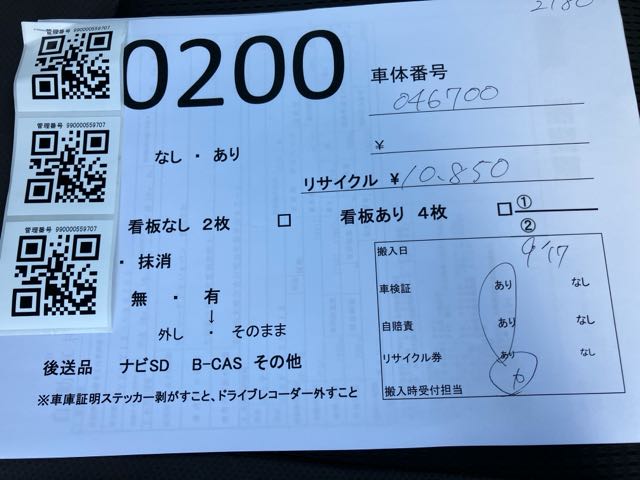 2180
管理番号 990000559707
0200
車体番号
046700
¥
なし ・ あり
リサイクル ¥10.850
管理番号 990000559707
看板なし 2枚 □ 看板あり 4枚 □①
②
管理番号 990000559707
・ 抹消
搬入日 9/17
車検証 あり なし
無 ・ 有
↓
自賠責 あり なし
外し ・ そのまま
リサイクル券 あり なし
後送品 ナビSD B-CAS その他
搬入時受付担当
※車庫証明ステッカー剥がすこと、ドライブレコーダー外すこと